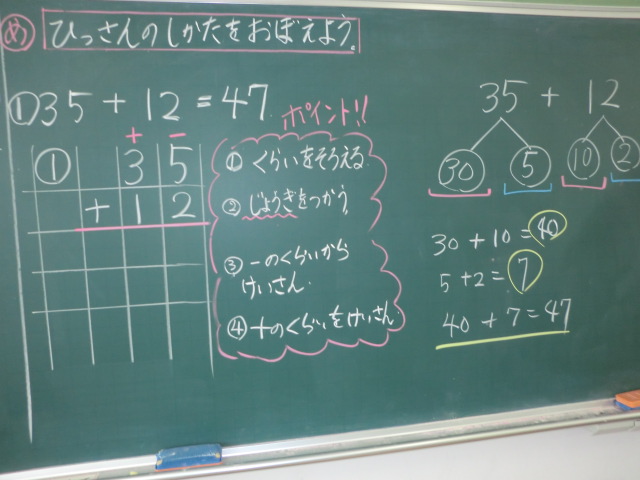 め ひっさんのしかたをおぼえよう。
① 35 + 12 = 47
ポイント!!
十 一
① 3 5
+ 1 2
① くらいをそろえる
② じょうぎをつかう。
③ 一のくらいから
けいさん.
④ 十のくらいをけいさん
35 + 12
30 5 10 2
30 + 10 = 40
5 + 2 = 7
40 + 7 = 47